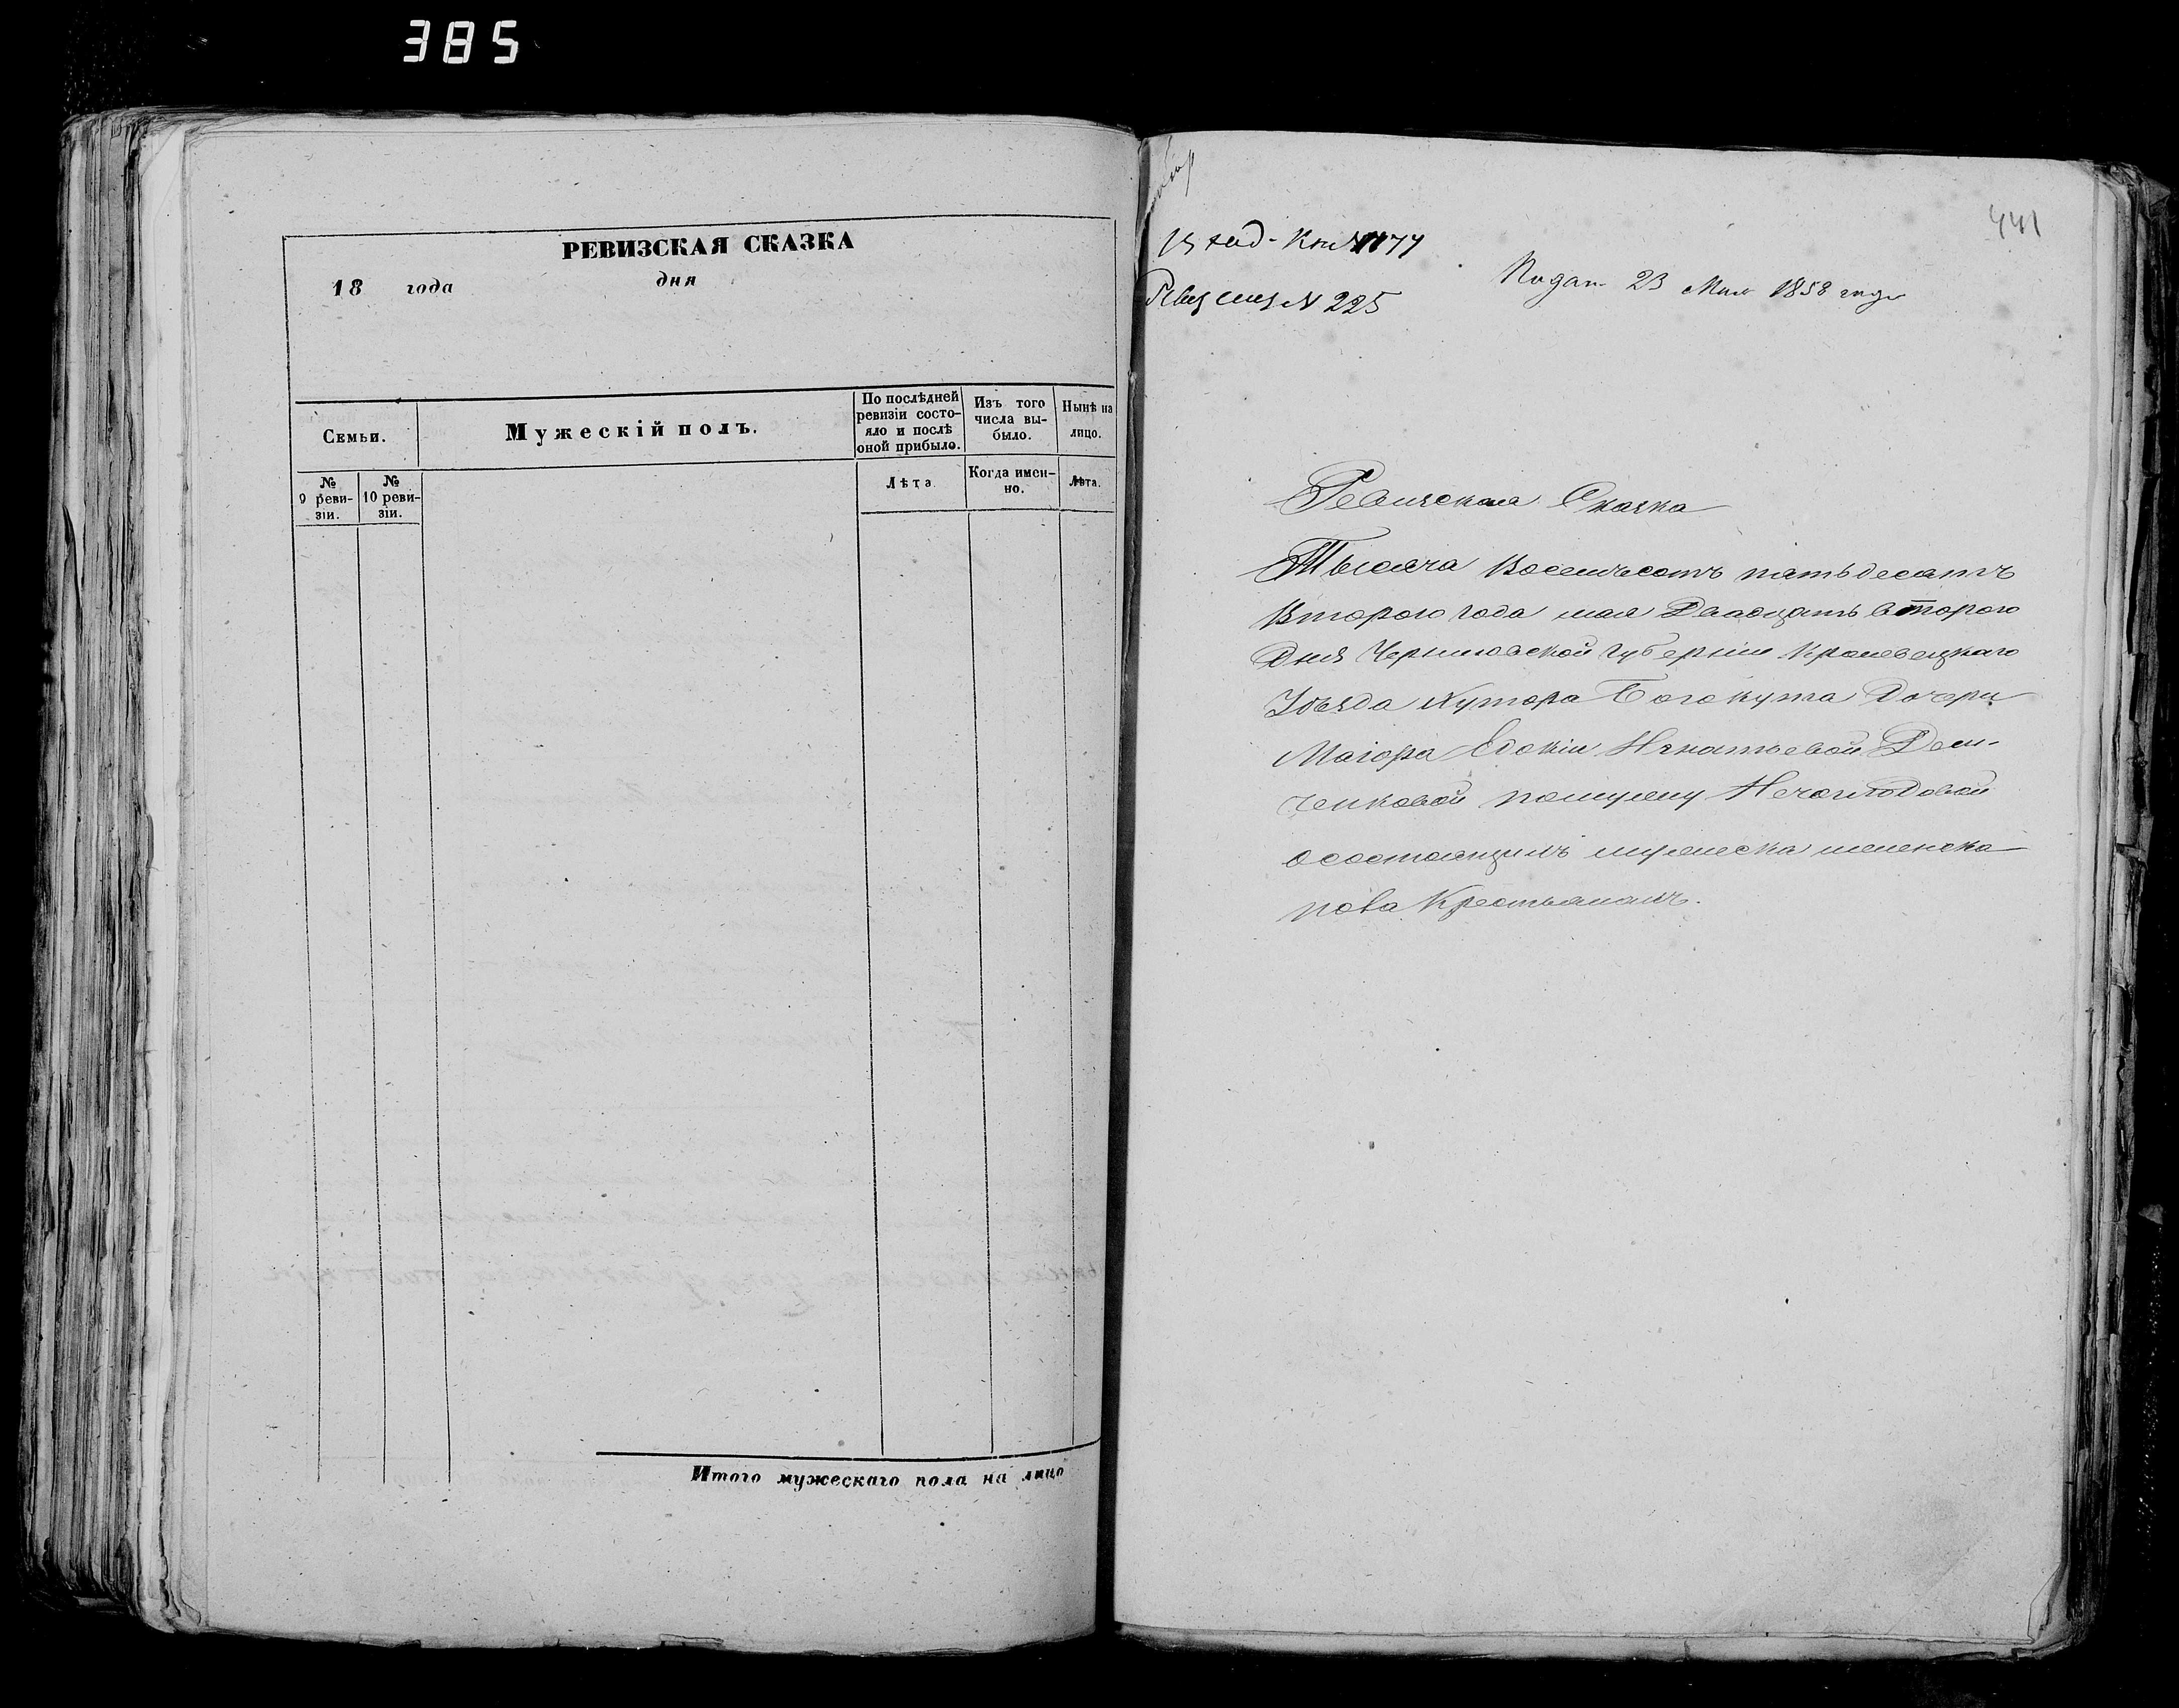 385
РЕВИЗСКАЯ СКАЗКА
18 года дня
Семьи.
Мужескій полъ.
По послѣдней ревизіи состо-
яло и послѣ
оной прибыло.
Изъ того
числа вы-
было.
Нынѣ на
лицо.
№
9 реви-
зіи.
№
10 реви-
зіи.
Лѣта
Когда имен-
но.
Лѣта.
Итого мужескаго пола на лицо
441
№ 225
Подан 23 Мая 1858 года
Ревизская Сказка
Тысяча Восемьсотъ пятьдесятъ
Второго года мая Двадцать второго
Дня Черниговской Губерніи Кролевецкаго
Уѣзда Хутора Дочери
Маіора Евдокіи Игнатьевой Дем-
ченковой помужу
осостоящихъ мужеска женска
пола Крестьянахъ.